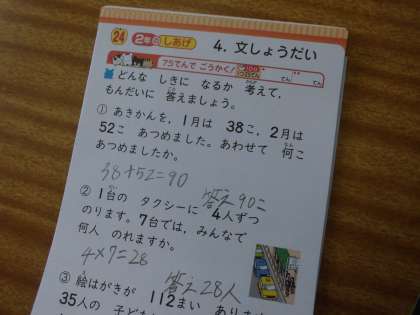 24 2年のしあげ 4. 文しょうだい
75てんで ごうかく! てん てん
どんな しきに なるか 考えて、
もんだいに 答えましょう。
① あきかんを、1月は 38こ、2月は
52こ あつめました。あわせて 何こ
あつめましたか。
38+52=90
答え90こ
② 1台の タクシーに 4人ずつ
のります。7台では、みんなで
何人 のれますか。
4×7=28
答え28人
③ 絵はがきが 112まい
35人の